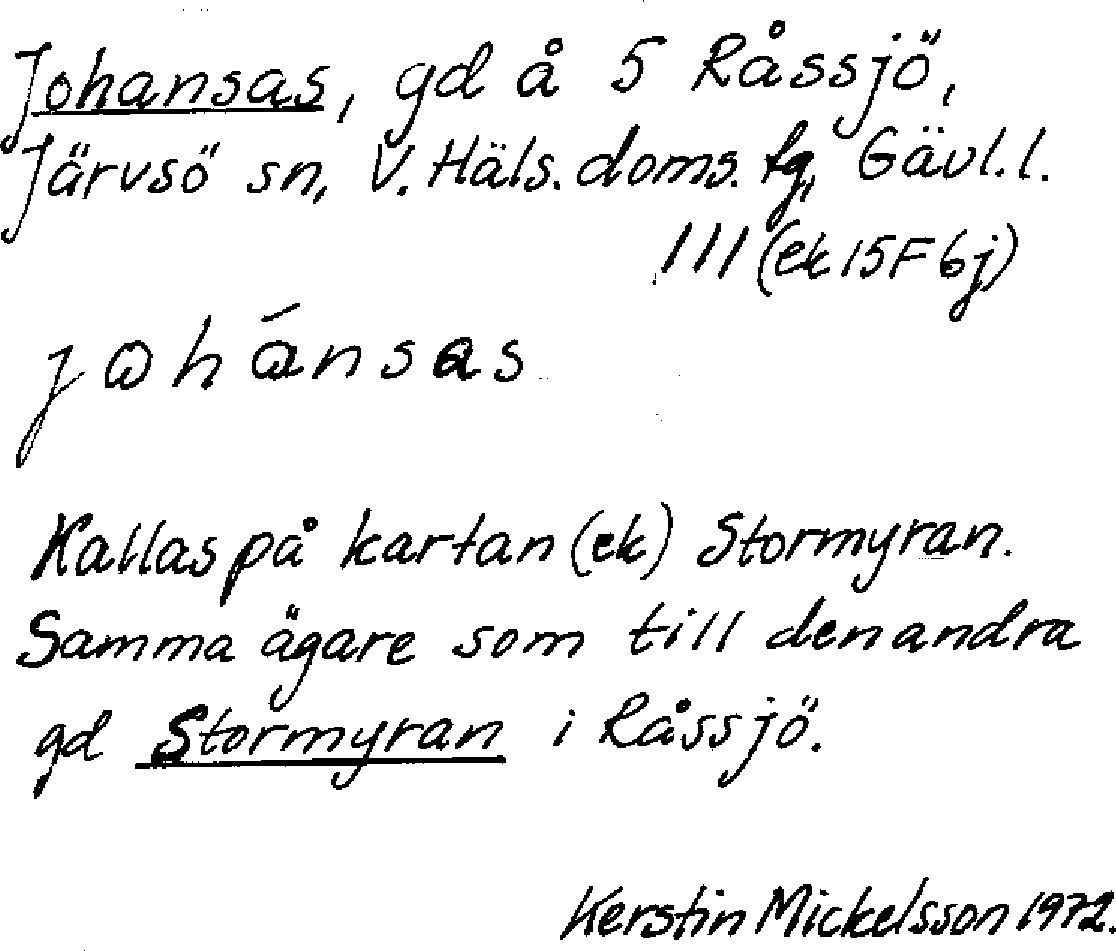 Johansas, gd å 5 Råssjö,
Järvsö sn, V. Häls. doms. tg, Gävl. l.
III (ek 15F 6j)
johánsas
Kallas på kartan (ek) Stormyran.
Samma ägare som till den andra
gd Stormyran i Råssjö.
Kerstin Mickelsson 1972.